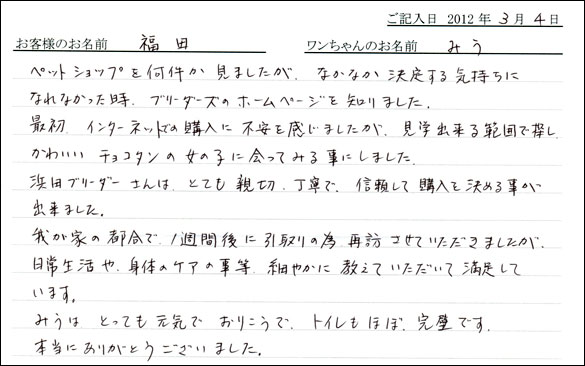 ご記入日 2012 年 3 月 4 日
お客様のお名前 福田 ワンちゃんのお名前 みう
ペットショップを何件か見ましたが、なかなか決定する気持ちに
なれなかった時、ブリーダーズのホームページを知りました。
最初、インターネットでの購入に不安を感じましたが、見学出来る範囲で探し、
かわいい チョコタンの女の子に会ってみる事にしました。
浜田ブリーダーさんは、とても親切、丁寧で、信頼して購入を決める事が
出来ました。
我が家の都合で、1週間後に引取りの為、再訪させていただきましたが、
日常生活や、身体のケアの事等、細やかに教えていただいて満足して
います。
みうは とっても元気で おりこうで、トイレもほぼ、完璧です。
本当にありがとうございました。